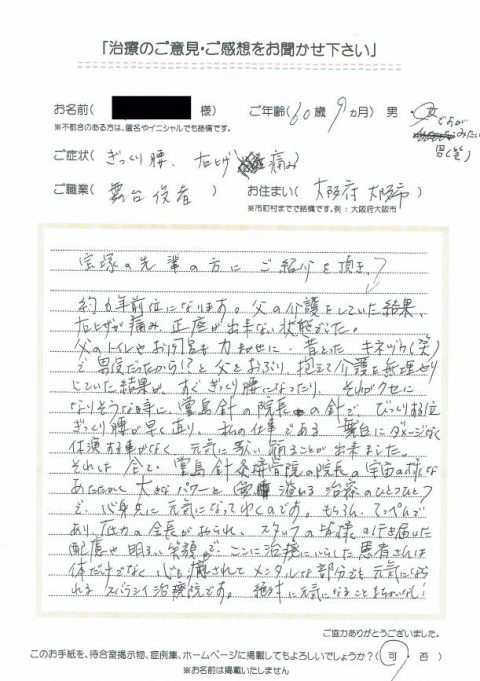 「治療のご意見・ご感想をお聞かせ下さい」
お名前( 様) ご年齢(60歳9ヵ月) 男 女 どちらか
※不都合のある方は、匿名やイニシャルでも結構です。
男(笑)
ご症状(ぎっくり腰、右ヒザ 痛み)
ご職業(舞台役者) お住まい(大阪府大阪市)
※市町村までで結構です。例：大阪府大阪市
宝塚の先輩の方にご紹介を頂き、
約6年前位になります。父の介護をしていた結果、
右ヒザが痛み正座が出来ない状態でした。
父のトイレやお風呂も力まかせに、昔とった キネヅカ(笑)
で男役だったから!?と父をおぶり、抱えて介護を無理やり
していた結果が、すぐぎっくり腰になったり、それがクセに
なりそうな時に、堂島針の院長の針で、びっくりする位
ぎっくり腰が早く直り、私の仕事である 舞台にダメージなく
休演する事がなく 元気に歌い踊ることが出来ました。
それは全て、堂島針灸整骨院の院長の宇宙の様な
あたたかく大きなパワーと 溢れる 治療のひとつひとつ
で、心身共に元気になってゆくのです。もちろん、てっぺんで
あり、底力の会長がおられ、スタッフの皆様の行き届いた
配慮や明るい笑顔で、ここに治療にいらした患者さんは
体だけでなく心も癒されてメンタルな部分でも元気になら
れるスバラシイ治療院です。 絶対に元気になることまちがいなし！
ご協力ありがとうございました。
このお手紙を、待合室掲示物、症例集、ホームページに掲載してもよろしいでしょうか？(可・否)
※お名前は掲載いたしません